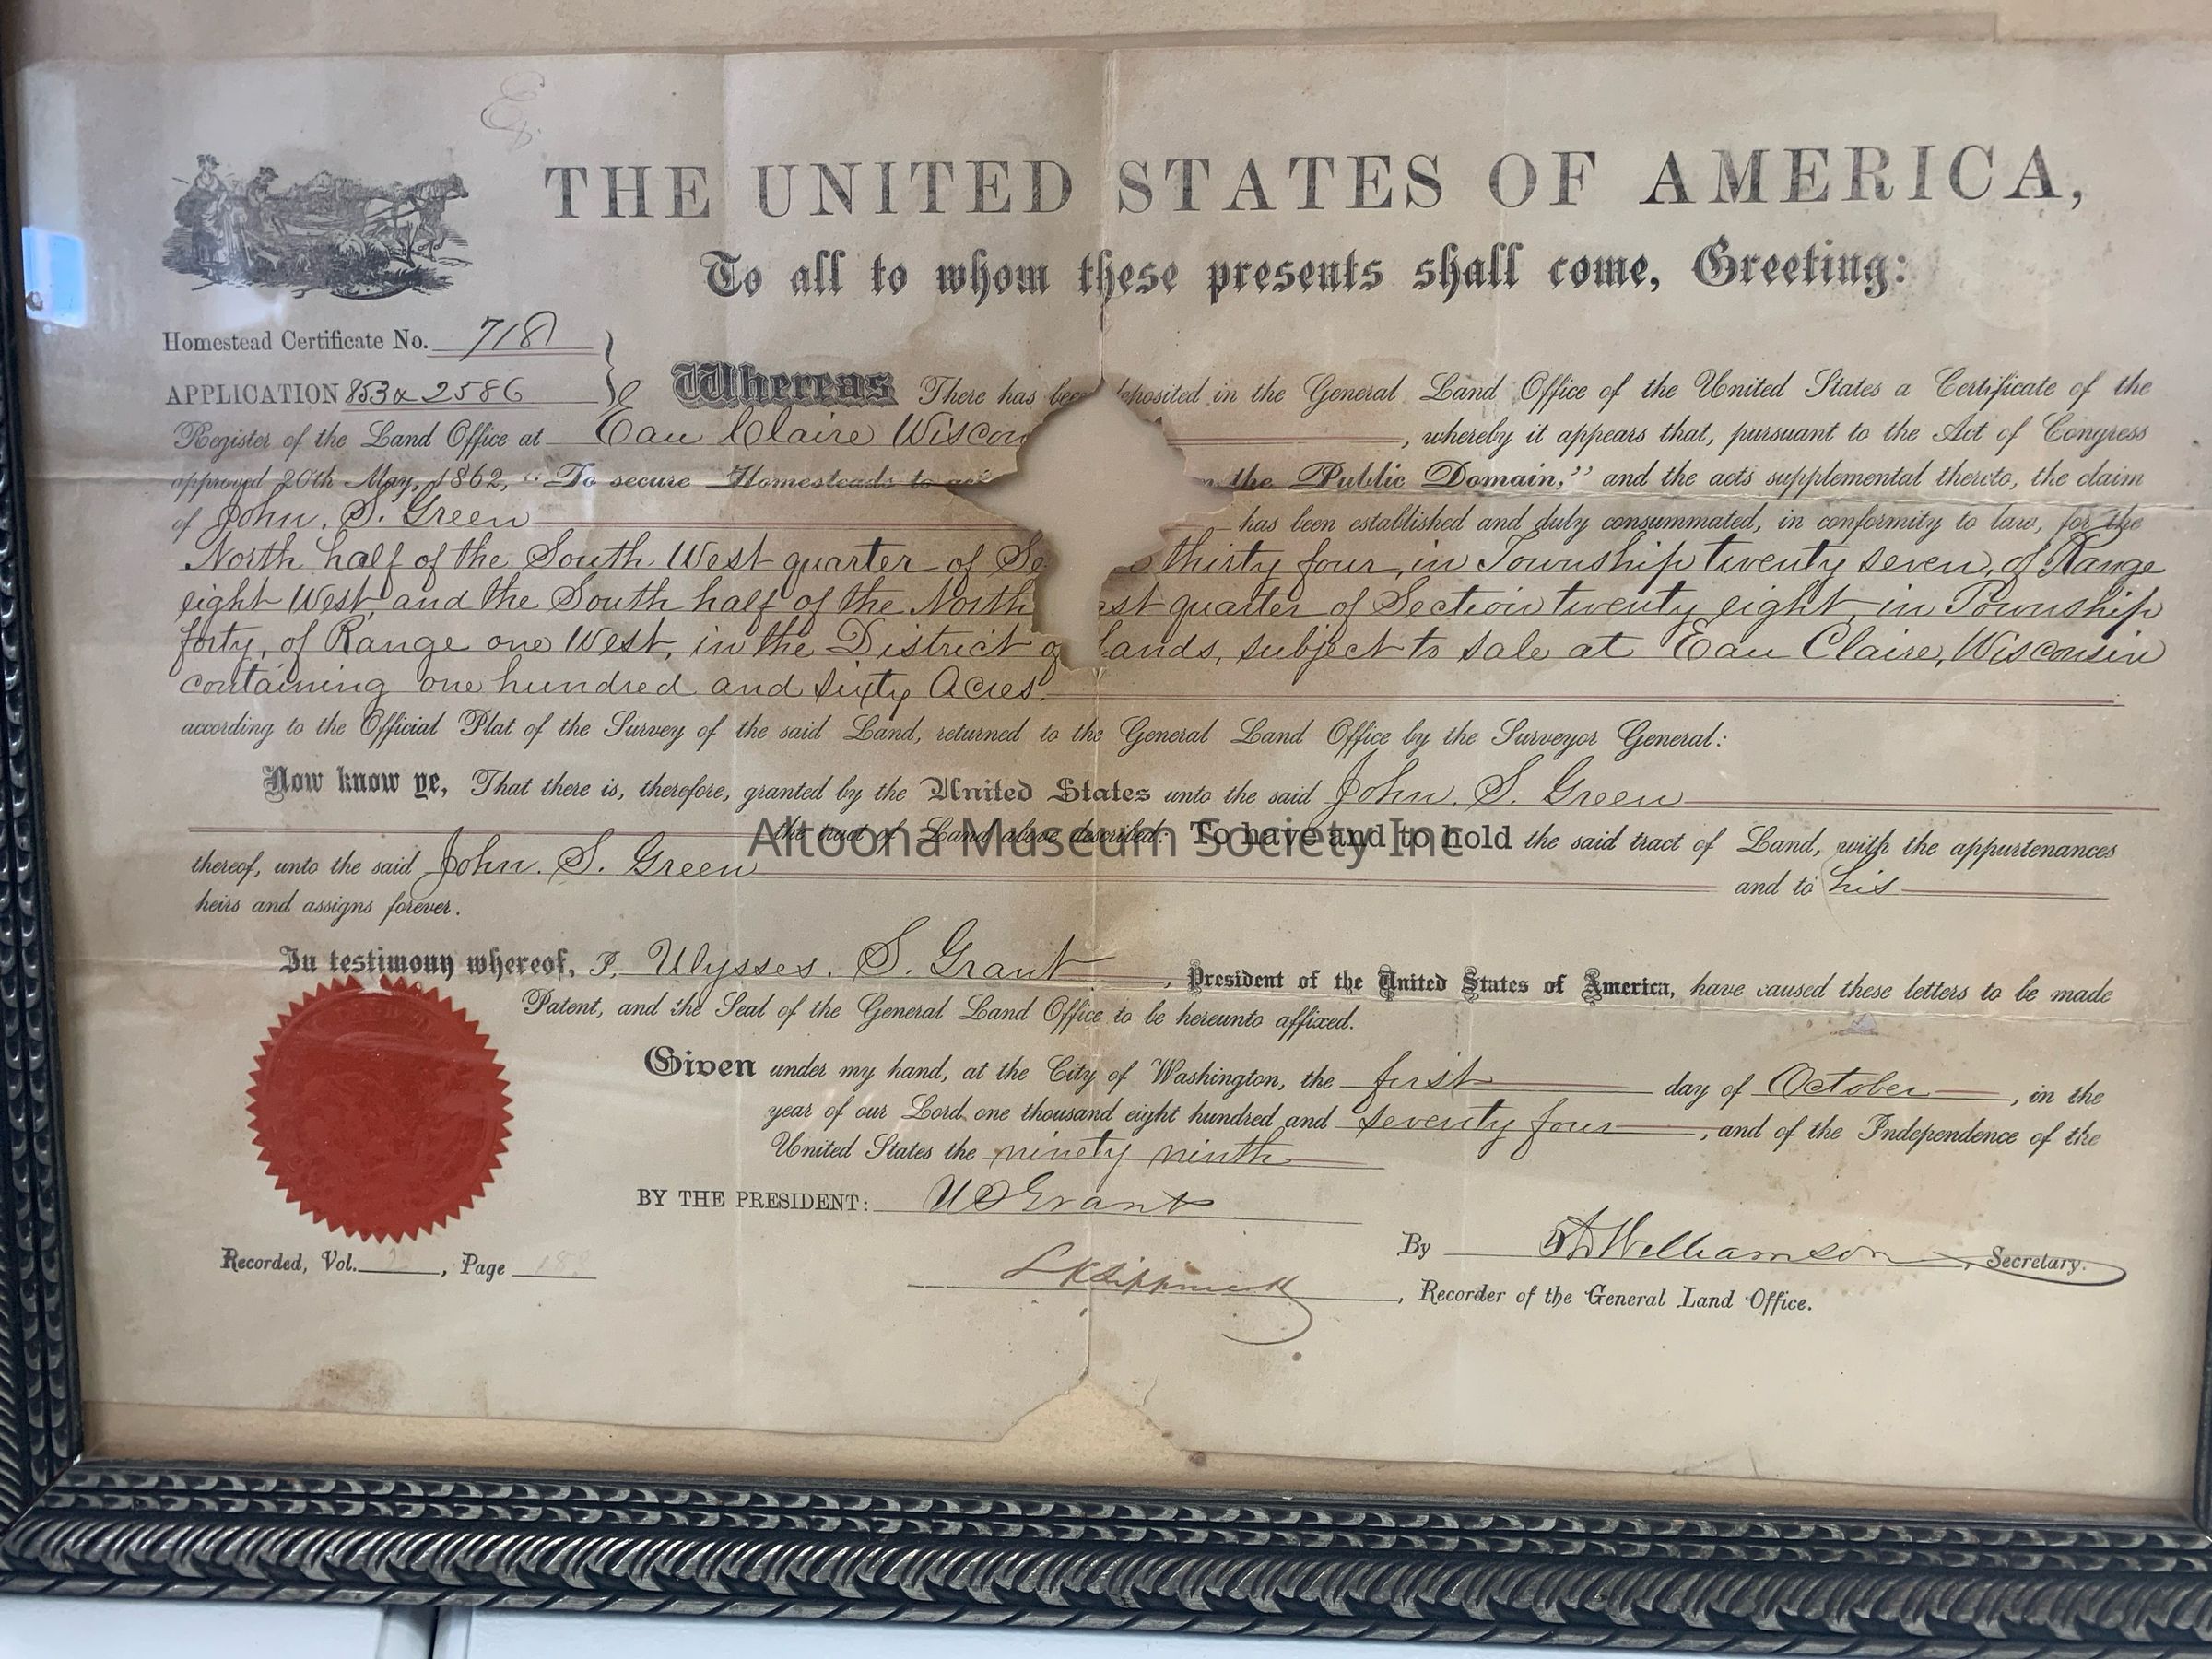 THE UNITED STATES OF AMERICA,
To all to whom these presents shall come, Greeting:
Homestead Certificate No. 718
APPLICATION 853 & 2586
Whereas There has been deposited in the General Land Office of the United States a Certificate of the
Register of the Land Office at Eau Claire Wiscon , whereby it appears that, pursuant to the Act of Congress
approved 20th May, 1862, "To secure Homesteads to the Public Domain," and the acts supplemental thereto, the claim
of John. S. Green has been established and duly consummated, in conformity to law, for the
North half of the South West quarter of Se thirty four, in Township twenty seven, of Range
eight West, and the South half of the North ast quarter of Section twenty eight, in Township
forty, of Range one West, in the District of Lands, subject to sale at Eau Claire, Wisconsin
containing one hundred and sixty Acres.
according to the Official Plat of the Survey of the said Land, returned to the General Land Office by the Surveyor General:
Now know ye, That there is, therefore, granted by the United States unto the said John. S. Green
the tract of Land above described: To have and to hold the said tract of Land, with the appurtenances
Altoona Museum Society Inc
thereof, unto the said John. S. Green and to his
heirs and assigns forever.
In testimony whereof, I, Ulysses. S. Grant, President of the United States of America, have caused these letters to be made
Patent, and the Seal of the General Land Office to be hereunto affixed.
Given under my hand, at the City of Washington, the first day of October, in the
year of our Lord one thousand eight hundred and seventy four, and of the Independence of the
United States the ninety ninth
BY THE PRESIDENT: U S Grant
By Williamson, Secretary.
Recorded, Vol. , Page
, Recorder of the General Land Office.